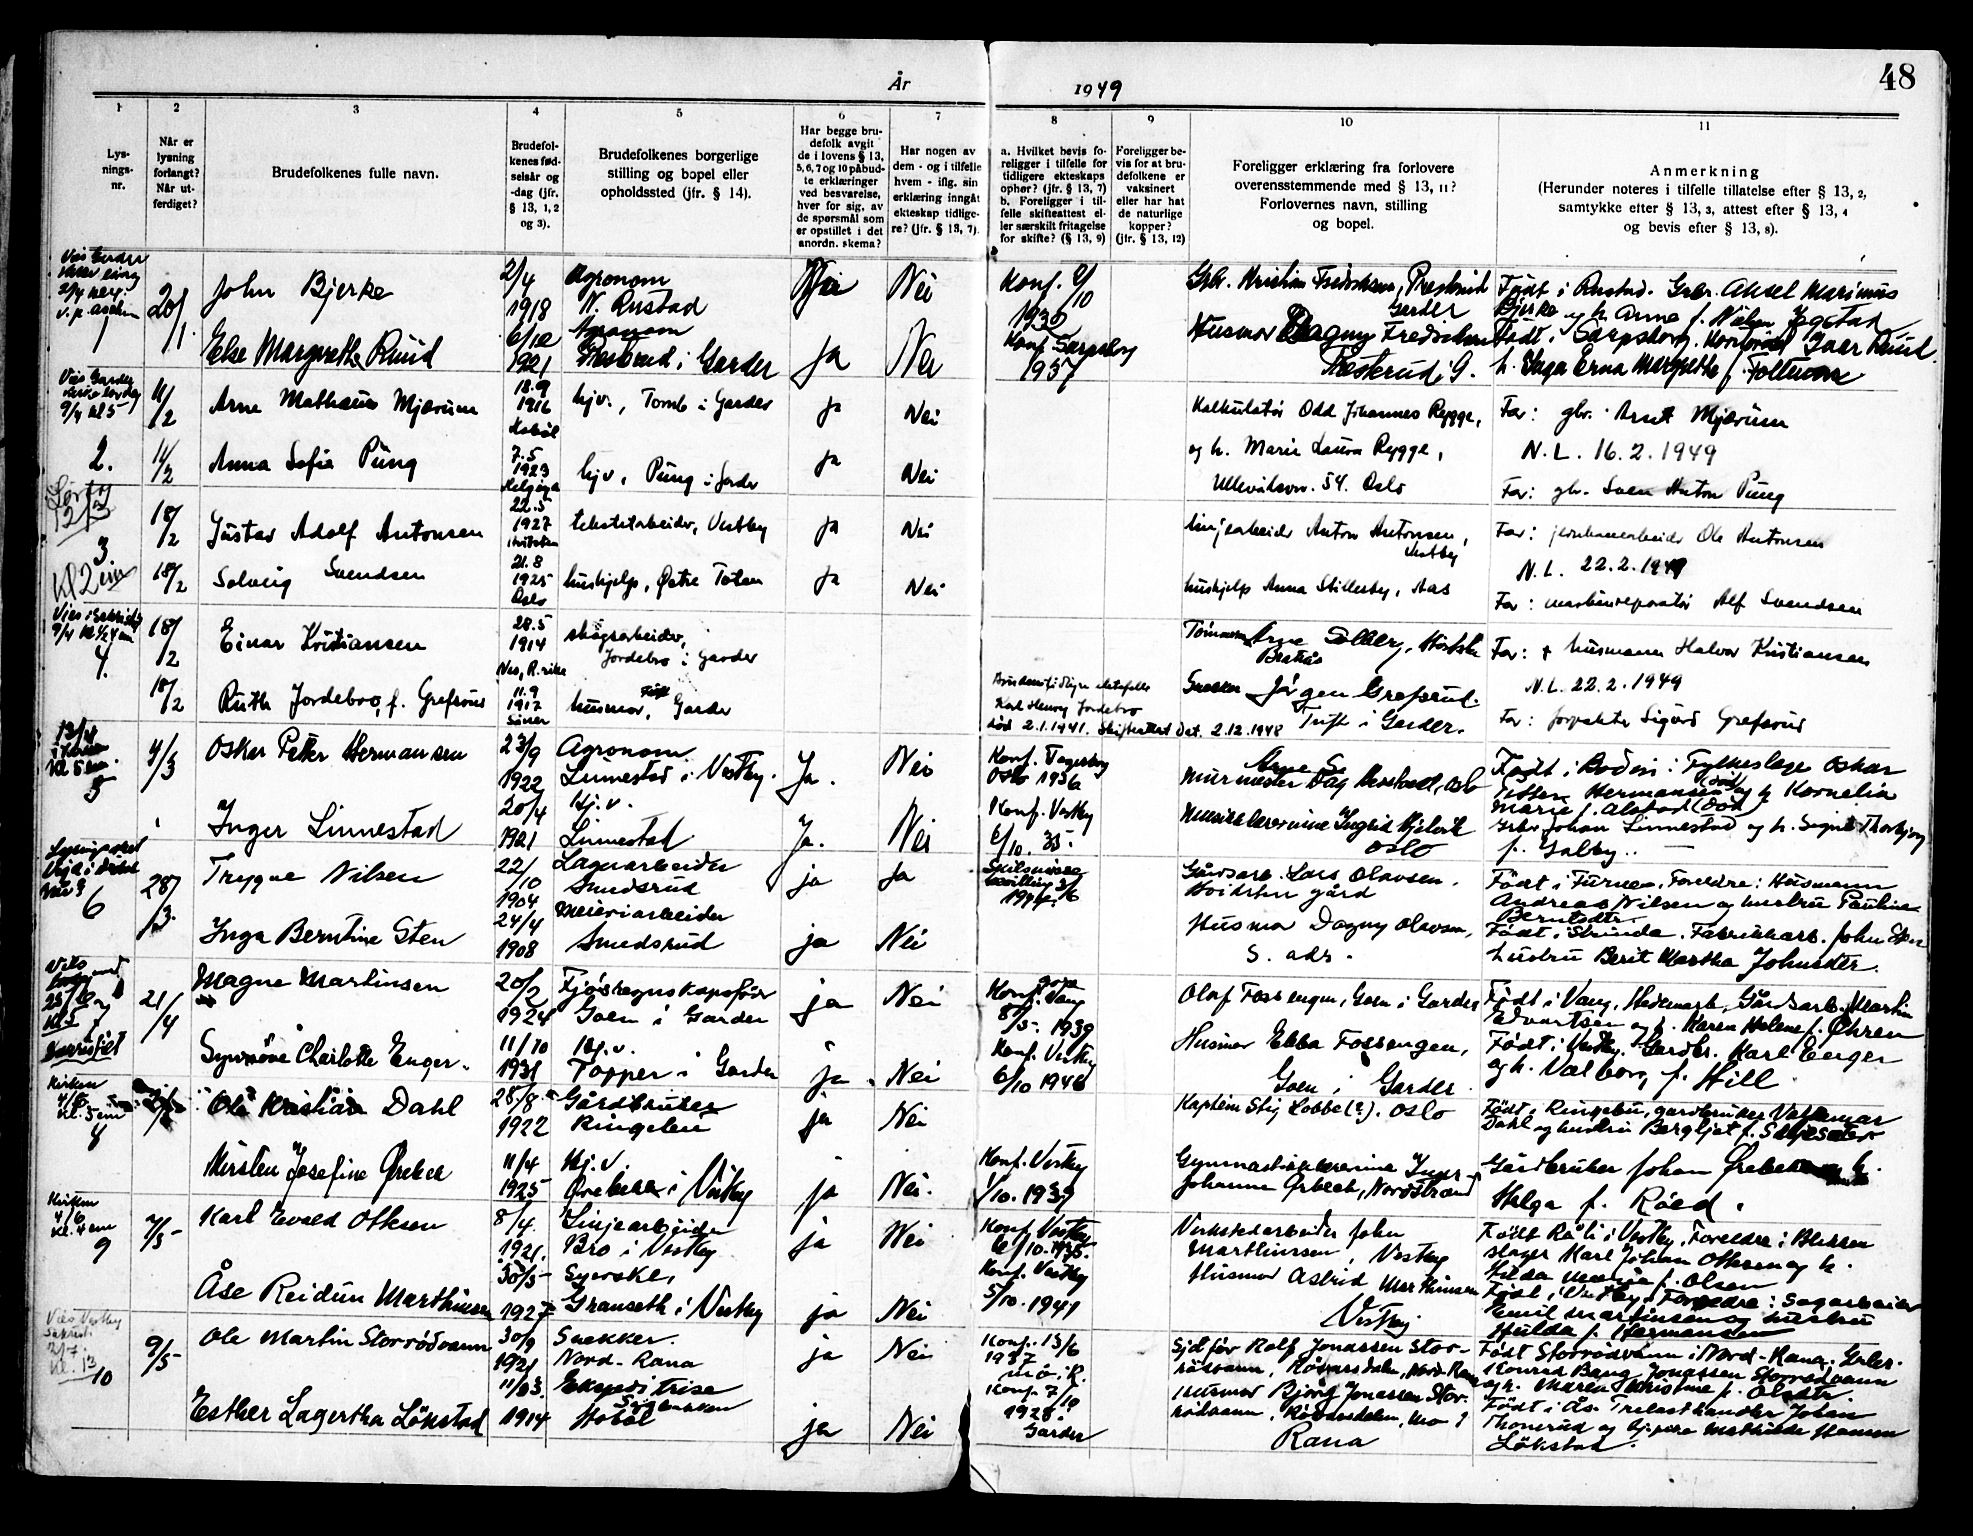 48
År 1949
1 2 3 4 5 6 7 8 9 10 11
Lys-
nings-
nr.
Når er
lysning
forlangt?
Når ut-
ferdiget?
Brudefolkenes fulle navn.
Brudefol-
kenes fød-
selsår og
-dag (jfr.
§ 13, 1, 2
og 3).
Brudefolkenes borgerlige
stilling og bopel eller
opholdssted (jfr. § 14).
Har begge bru-
defolk avgit
de i lovens § 13,
5, 6, 7 og 10 påbud-
te erklæringer
ved besvarelse,
hver for sig, av
de spørsmål som
er opstillet i det
anordn. skema?
Har nogen av
dem - og i tilfelle
hvem - iflg. sin
erklæring inngått
ekteskap tidlige-
re? (jfr. § 13, 7).
a. Hvilket bevis fo-
religger i tilfelle for
tidligere ekteskaps
ophør? (jfr. § 13, 7)
b. Foreligger i til-
felle skifteattest el-
ler særskilt fritagelse
for skifte? (§ 13, 9)
Foreligger be-
vis for at bru-
defolkene er
vaksinert
eller har hat
de naturlige
kopper?
(jfr. § 13, 12)
Foreligger erklæring fra forlovere
overensstemmende med § 13, 11?
Forlovernes navn, stilling
og bopel.
Anmerkning
(Herunder noteres i tilfelle tillatelse efter § 13, 2,
samtykke efter § 13, 3, attest efter § 13, 4
og bevis efter § 13, 8).
1 20/1 John Bjerke 2/4 1918 Agronom N. Rustad Nei
Konf. 2/10 1932
Gbr. Kristian Fredriksen, Presterud Garder
Født i Rustad. Grbr. Aksel Marinus
Bjerke og h. Anna f. Nielsen Jegstad
Else Margrethe Ruud 6/12 1921 Presterud i Garder Ja Nei
Konf. Sarpsborg 1937
Husmor Dagny Fredriksen Presterud i G.
Født i Sarpsborg. Ivar Ruud
h. Inga Erna Margrethe f.
2. 11/2 Arne Mathæus Mjærum 18.9 1916 Hobøl
Tomb i Garder ja Nei
Kalkulatør Odd Johannes Rygge,
Far: gbr. Arnt Mjærum
11/2 Anna Sofie Pung 7.5 1923 Helgøya
hjv, Pung i Garder ja Nei
og h. Marie Laura Rygge,
Ullevålsvn. 54. Oslo
N.L. 16.2.1949
Far: gbr. Sven Anton Pung
Lørdag 12/3
3. 18/2 Gustav Adolf Antonsen 22.5 1927
tekstilarbeider, Vestby ja Nei
linjearbeider Anton Antonsen, Vestby
Far: jernbanearbeider Ole Antonsen
Kl 2
18/2 Solveig Svendsen 21.8 1925 Oslo
hushjelp, Østre Toten ja Nei
hushjelp Anna Stillerby, Aas
N.L. 22.2.1949
Far: maskinreparatør Alf Svendsen
4. 18/2 Einar Kristiansen 28.5 1914 Nes, R.rike
skogsarbeider, Jordebro i Garder
Arne Solberg,
Far: + husmann Halvor Kristiansen
18/2 Ruth Jordebro, f. Grefsrud 11.9 1917
husmor, Garder
Karl Henry Jordebro
død 2.1.1941. Skifteattest dat. 2.12.1948
Snekker Jørgen Grefsrud.
Tuft i Garder.
N.L. 22.2.1949
Far: forpakter Sigurd Grefsrud
13/4
5 4/3 Oskar Petter Hermansen 23/9 1922
Agronom Linnestad i Vestby. Ja. Nei
Konf. Fagerborg Oslo 1936
Murmester Dag Oslo
Født i Bodin: Fylkeslege Oskar
Petter Hermansen og h. Kornelia
Marie f. Alstad
Inger Linnestad 20/4 1921 Hj.v. Linnestad Ja. Nei
Konf. Vestby 6/10. 35.
Musikklærerinne Ingrid Hjelvik Oslo
Grbr. Johan Linnestad og h. Signe Thorbjørg
f. Galby.
6 28/3. Trygve Nilsen 22/10 1904
Lagerarbeider Smedsrud ja Ja
Gårdsarb. Lars Olavsen.
Hvidsten gård
Født i Furnes. Foreldre: Husmann
Andreas Nilsen og hustru Pauline
Berntsdtr.
Inga Berntine Sten 24/4 1908
Meieriarbeider Smedsrud ja Nei
Husmor Dagny Olavsen,
S. adr.
Født i Strinda. Fabrikkarb. John Sten
hustru Berit Martha Johnsdtr.
7 21/4 Magne Martinsen 20/2 1924
Fjøsregnskapsfører Goen i Garder ja Nei
Konf. Vang 8/5. 1939
Olaf Fossengen, Goen i Garder
Født i Vang, Hedemark, Gårdsarb. Martin
Edvartsen og h. Karen Helene f. Øhren
Synnøve Charlotte Enger. 11/10 1931
Hj.v. Topper i Garder ja. Nei
Konf. Vestby 6/10 1946
Husmor Ebba Fossengen,
Goen i Garder
Født i Vestby. Gardbr. Karl Enger
og h. Valborg f. Hill
Kirken 4/6 Kl. 5 em
8 Ole Kristian Dahl 28/8 1922
Gårdbruker Ringebu ja Nei
Kaptein Stig Lobbe(?). Oslo
Født i Ringebu, gardbruker Valdemar
Dahl og hustru Bergljot f.
Kirsten Josefine Ørbeck 11/4 1925
Hj.v Ørebekk i Vestby ja Nei.
Konf. Vestby 1/10. 1939
Gymnastikklærerinne Inger
Johanne Ørbeck, Nordstrand
Gårdbruker Johan Ørebekk og h.
Helga f. Röed.
Kirken 4/6 Kl. 4 em
9 7/5 Karl Evald Olsen 8/4. 1921.
Linjearbeider Bro i Vestby ja Nei
Konf. Vestby 6/10. 1935.
Verkstedarbeider John
Marthinsen, Vestby
Født Råli i Vestby, Foreldre: Blikken
slager Karl Johan Olsen og h.
Hilda Maria f. Olsen
Åse Reidun Marthinsen 30/5 1927
Syerske, Granseth i Vestby ja Nei
Konf. Vestby 5/10. 1941
Husmor Astrid Marthinsen
Vestby.
Født i Vestby. Foreldre: Sagarbeider
Emil Martinsen og hustru
Hulda f. Hermansen
Vies Vestby 2/7. Kl. 13
10 9/5 Ole Martin Storrødvann 30/9 1921
Snekker. Nord-Rana ja Nei
Konf. 13/6 1937 Mo i R.
Sjåfør Rolf Jonassen Stor-
rødvann, Røvassdalen, Nord-Rana
Født Storrødvann i Nord-Rana. Grbr.
Konrad Bang Jonassen Storrødvann
og h. Maren Kristine f. Olsdtr.
Esther Lagertha Lökstad 11/3. 1914
Ekspeditrise Hobøl ja Nei
Konf. 7/10 1928. Garder
Husmor Bjørg Jonassen Stor-
rødvann, Røvassdalen, Mo i
Rana
Født i Ås. Trelasthandler Johan
Thonerud og hj.pike Mathilde Hansen
Lökstad.